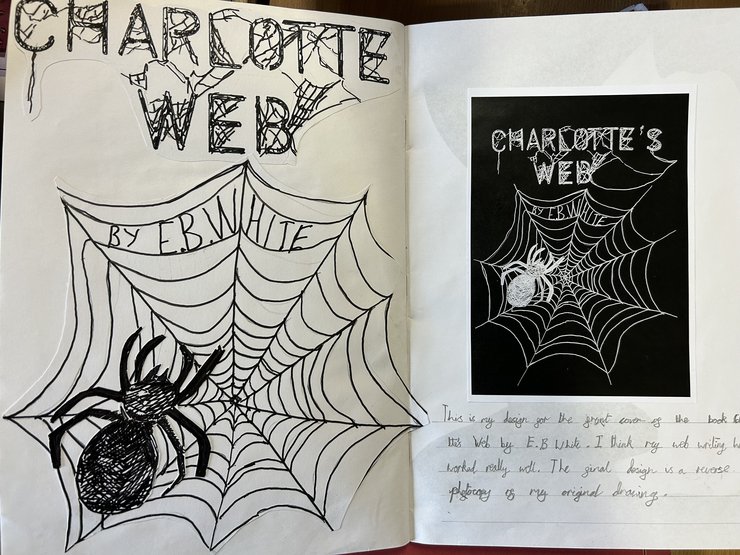 CHARLOTTE
WEB
BY E.B. WHITE
CHARLOTTE'S
WEB
BY E.B. WHITE
This is my design for the front cover of the book
this Web by E.B White. I think my web writing
worked really well. The final design is a reverse
photocopy of my original drawing.